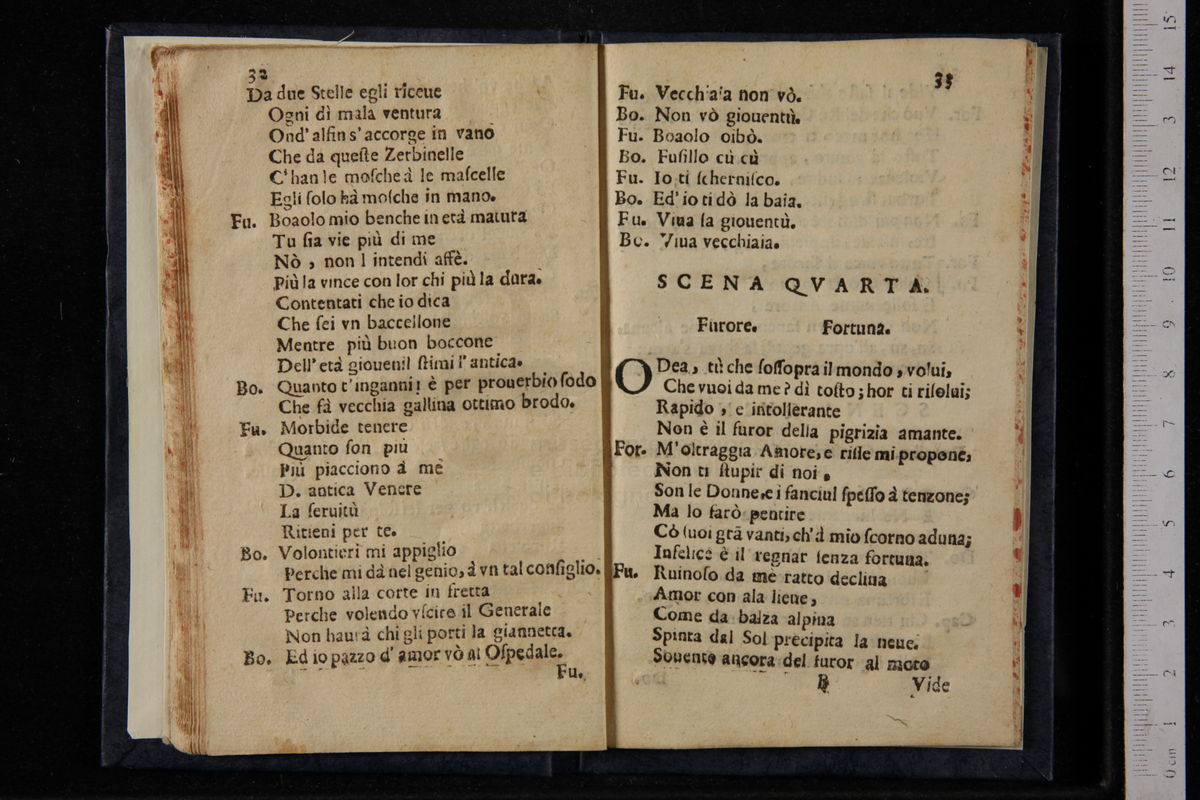 32
Da due Stelle egli riceue
Ogni dì mala ventura
Ond' alfin s' accorge in vano
Che da queſte Zerbinelle
C' han le moſche à le maſcelle
Egli ſolo hà moſche in mano.
Fu. Boaolo mio benche in età matura
Tu ſia vie più di me
Nò, non l intendi affè.
Più la vince con lor chi più la dura.
Contentati che io dica
Che ſei vn baccellone
Mentre più buon boccone
Dell' età giouenil ſtimi l' antica.
Bo. Quanto t' inganni! è per prouerbio ſodo
Che fà vecchia gallina ottimo brodo.
Fu. Morbide tenere
Quanto ſon più
Più piacciono à mè
D. antica Venere
La ſeruitù
Ritieni per te.
Bo. Volontieri mi appiglio
Perche mi dà nel genio, à vn tal conſiglio.
Fu. Torno alla corte in fretta
Perche volendo vſcire il Generale
Non haurà chi gli porti la giannetta.
Bo. Ed io pazzo d' amor vò al Oſpedale.
Fu.
33
Fu. Vecchiaia non vò.
Bo. Non vò giouentù.
Fu. Boaolo oibò.
Bo. Fuſillo cù cù
Fu. Io ti ſcherniſco.
Bo. Ed' io ti dò la baia.
Fu. Viua la giouentù.
Bo. Viua vecchiaia.
SCENA QVARTA.
Furore. Fortuna.
O Dea, tù che ſoſſopra il mondo, volui,
Che vuoi da me? dì toſto; hor ti riſolui;
Rapido, e intollerante
Non è il furor della pigrizia amante.
For. M' oltraggia Amore, e riſſe mi propone,
Non ti ſtupir di noi.
Son le Donne, e i fanciul ſpeſſo à tenzone;
Ma lo farò pentire
Cõ ſuoi grã vanti, ch' à mio ſcorno aduna;
Infelice è il regnar ſenza fortuna.
Fu. Ruinoſo da mè ratto declina
Amor con ala lieue,
Come da balza alpina
Spinta dal Sol precipita la neue.
Souente ancora del furor al moto
B Vide